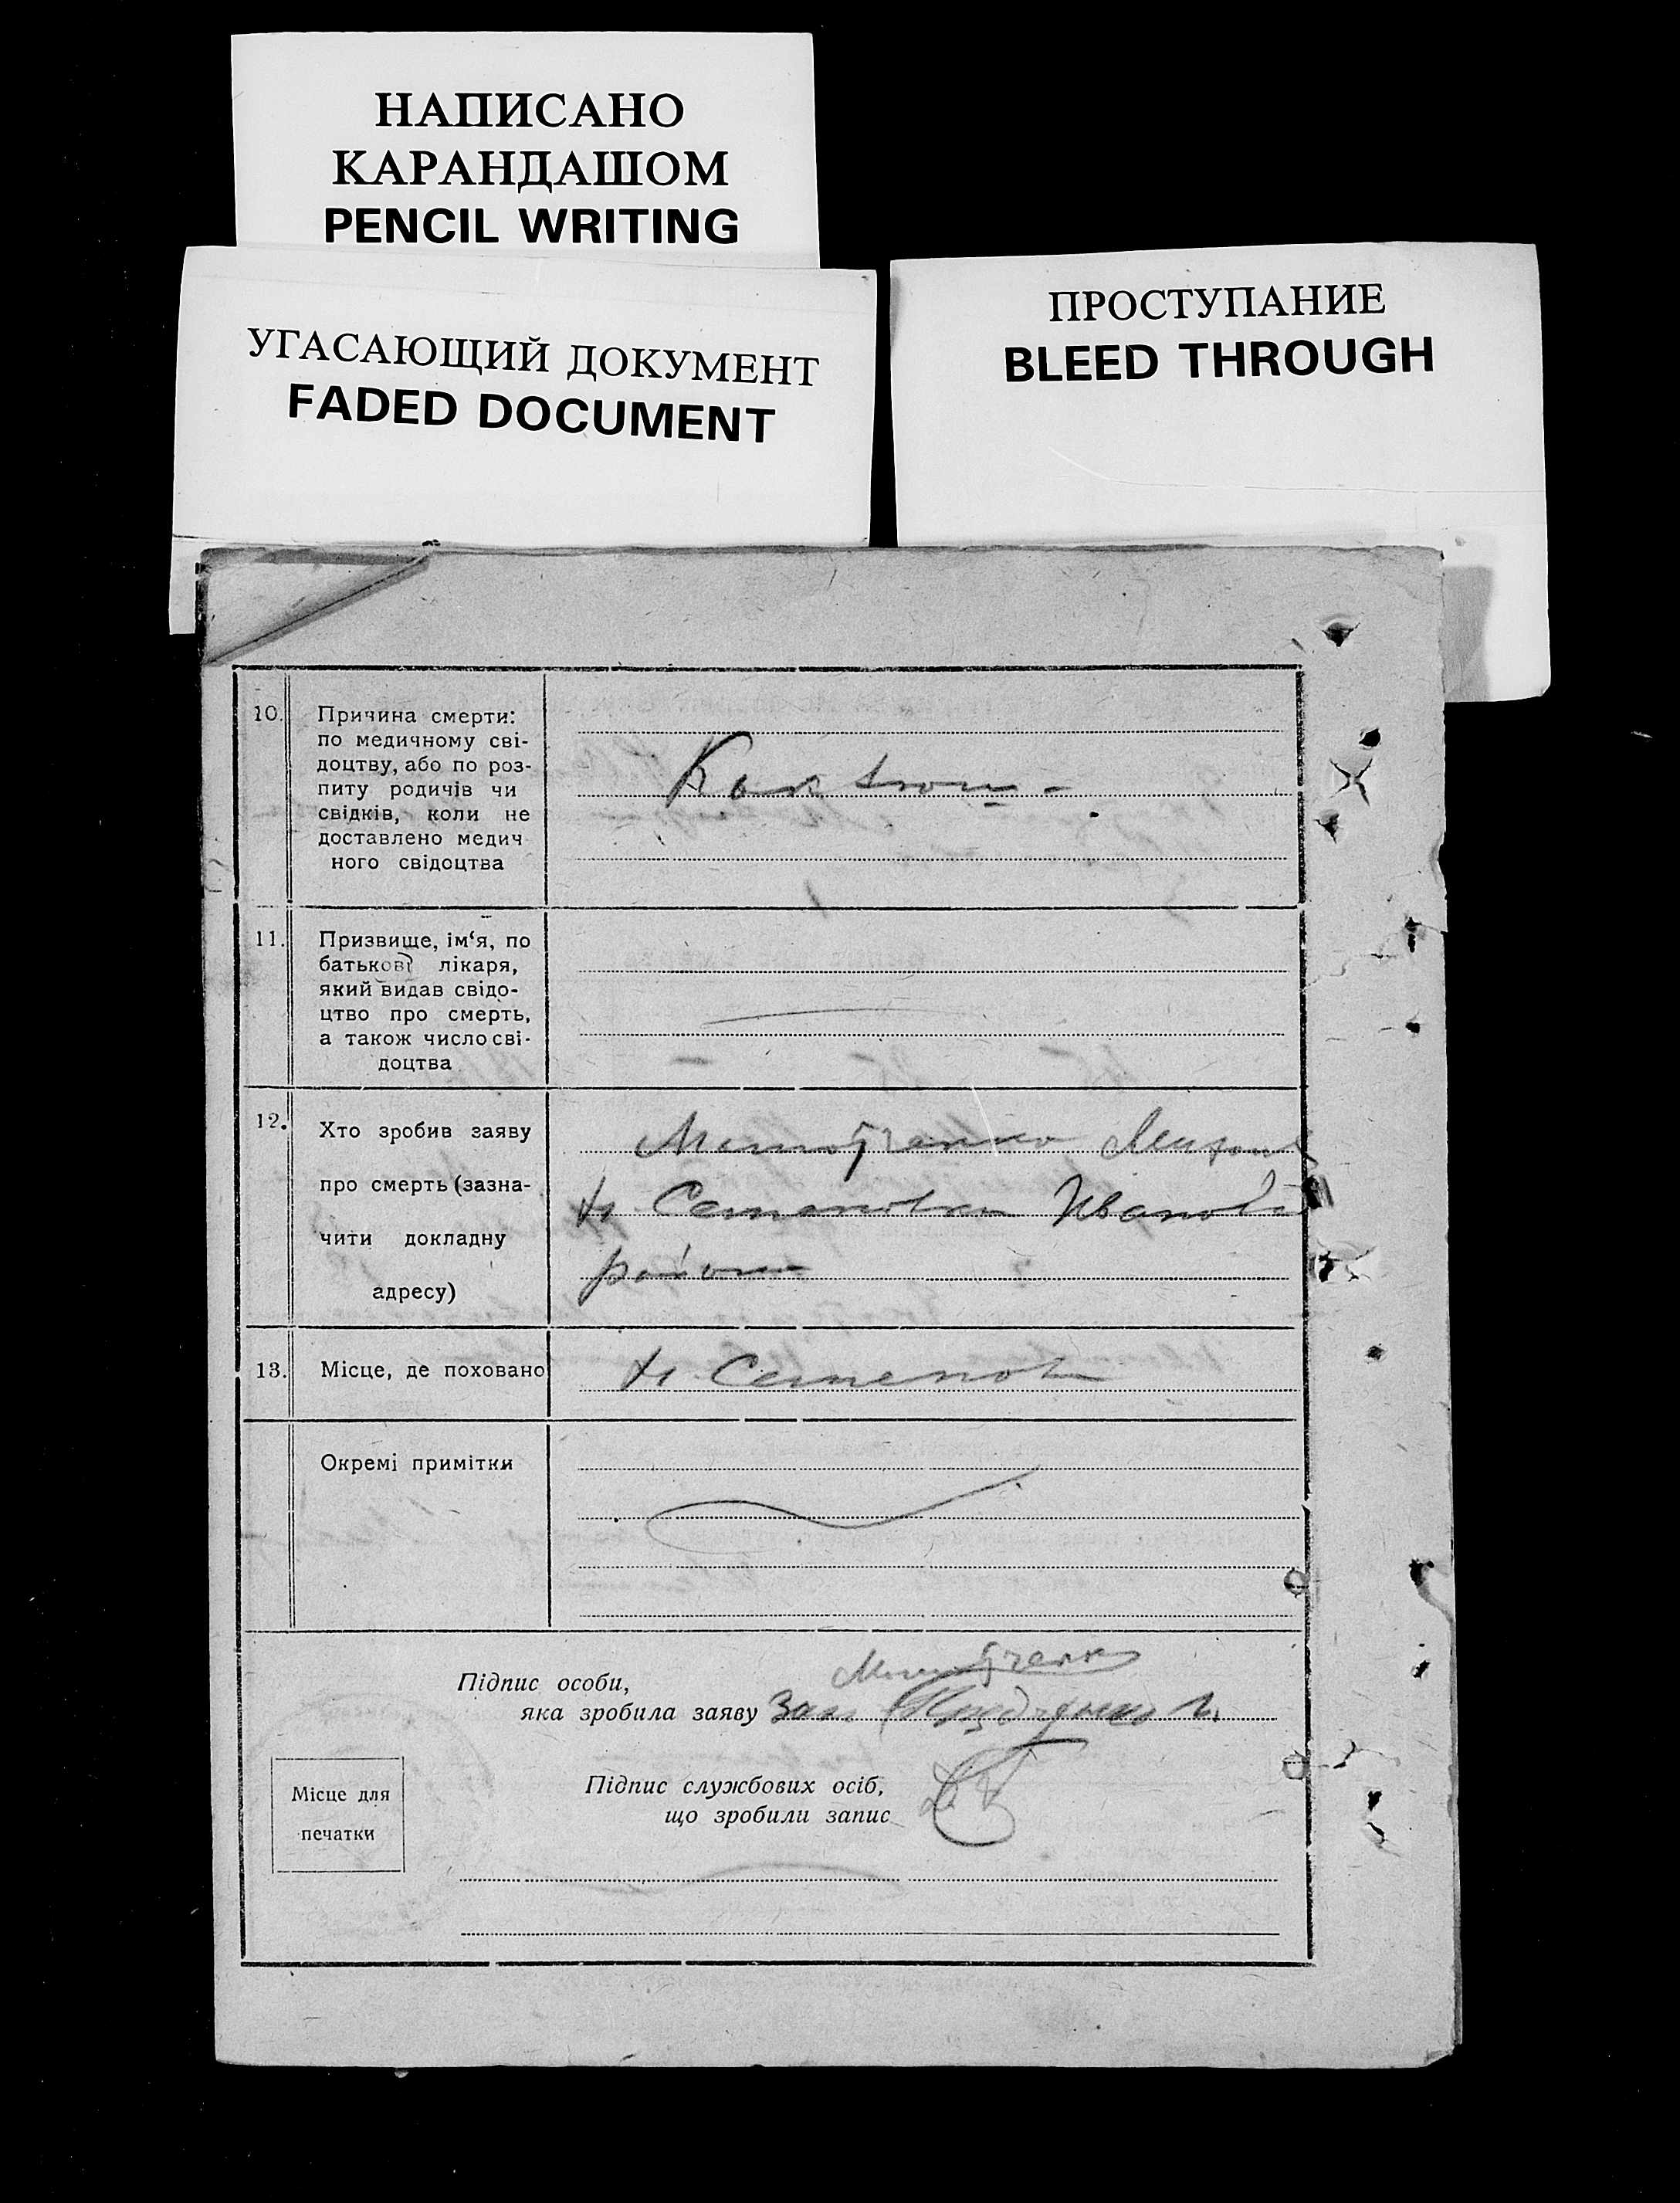 НАПИСАНО
КАРАНДАШОМ
PENCIL WRITING
УГАСАЮЩИЙ ДОКУМЕНТ
FADED DOCUMENT
ПРОСТУПАНИЕ
BLEED THROUGH
10. Причина смерти:
по медичному сві-
доцтву, або по роз-
питу родичів чи
свідків, коли не
доставлено медич
ного свідоцтва
11. Призвище, ім‘я, по
батькові лікаря,
який видав свідо-
цтво про смерть,
а також число сві-
доцтва
12. Хто зробив заяву
про смерть (зазна-
чити докладну
адресу)
Семеновка
района
13. Місце, де поховано
Окремі примітки
Підпис особи,
яка зробила заяву
Підпис службових осіб,
що зробили запис
Місце для
печатки